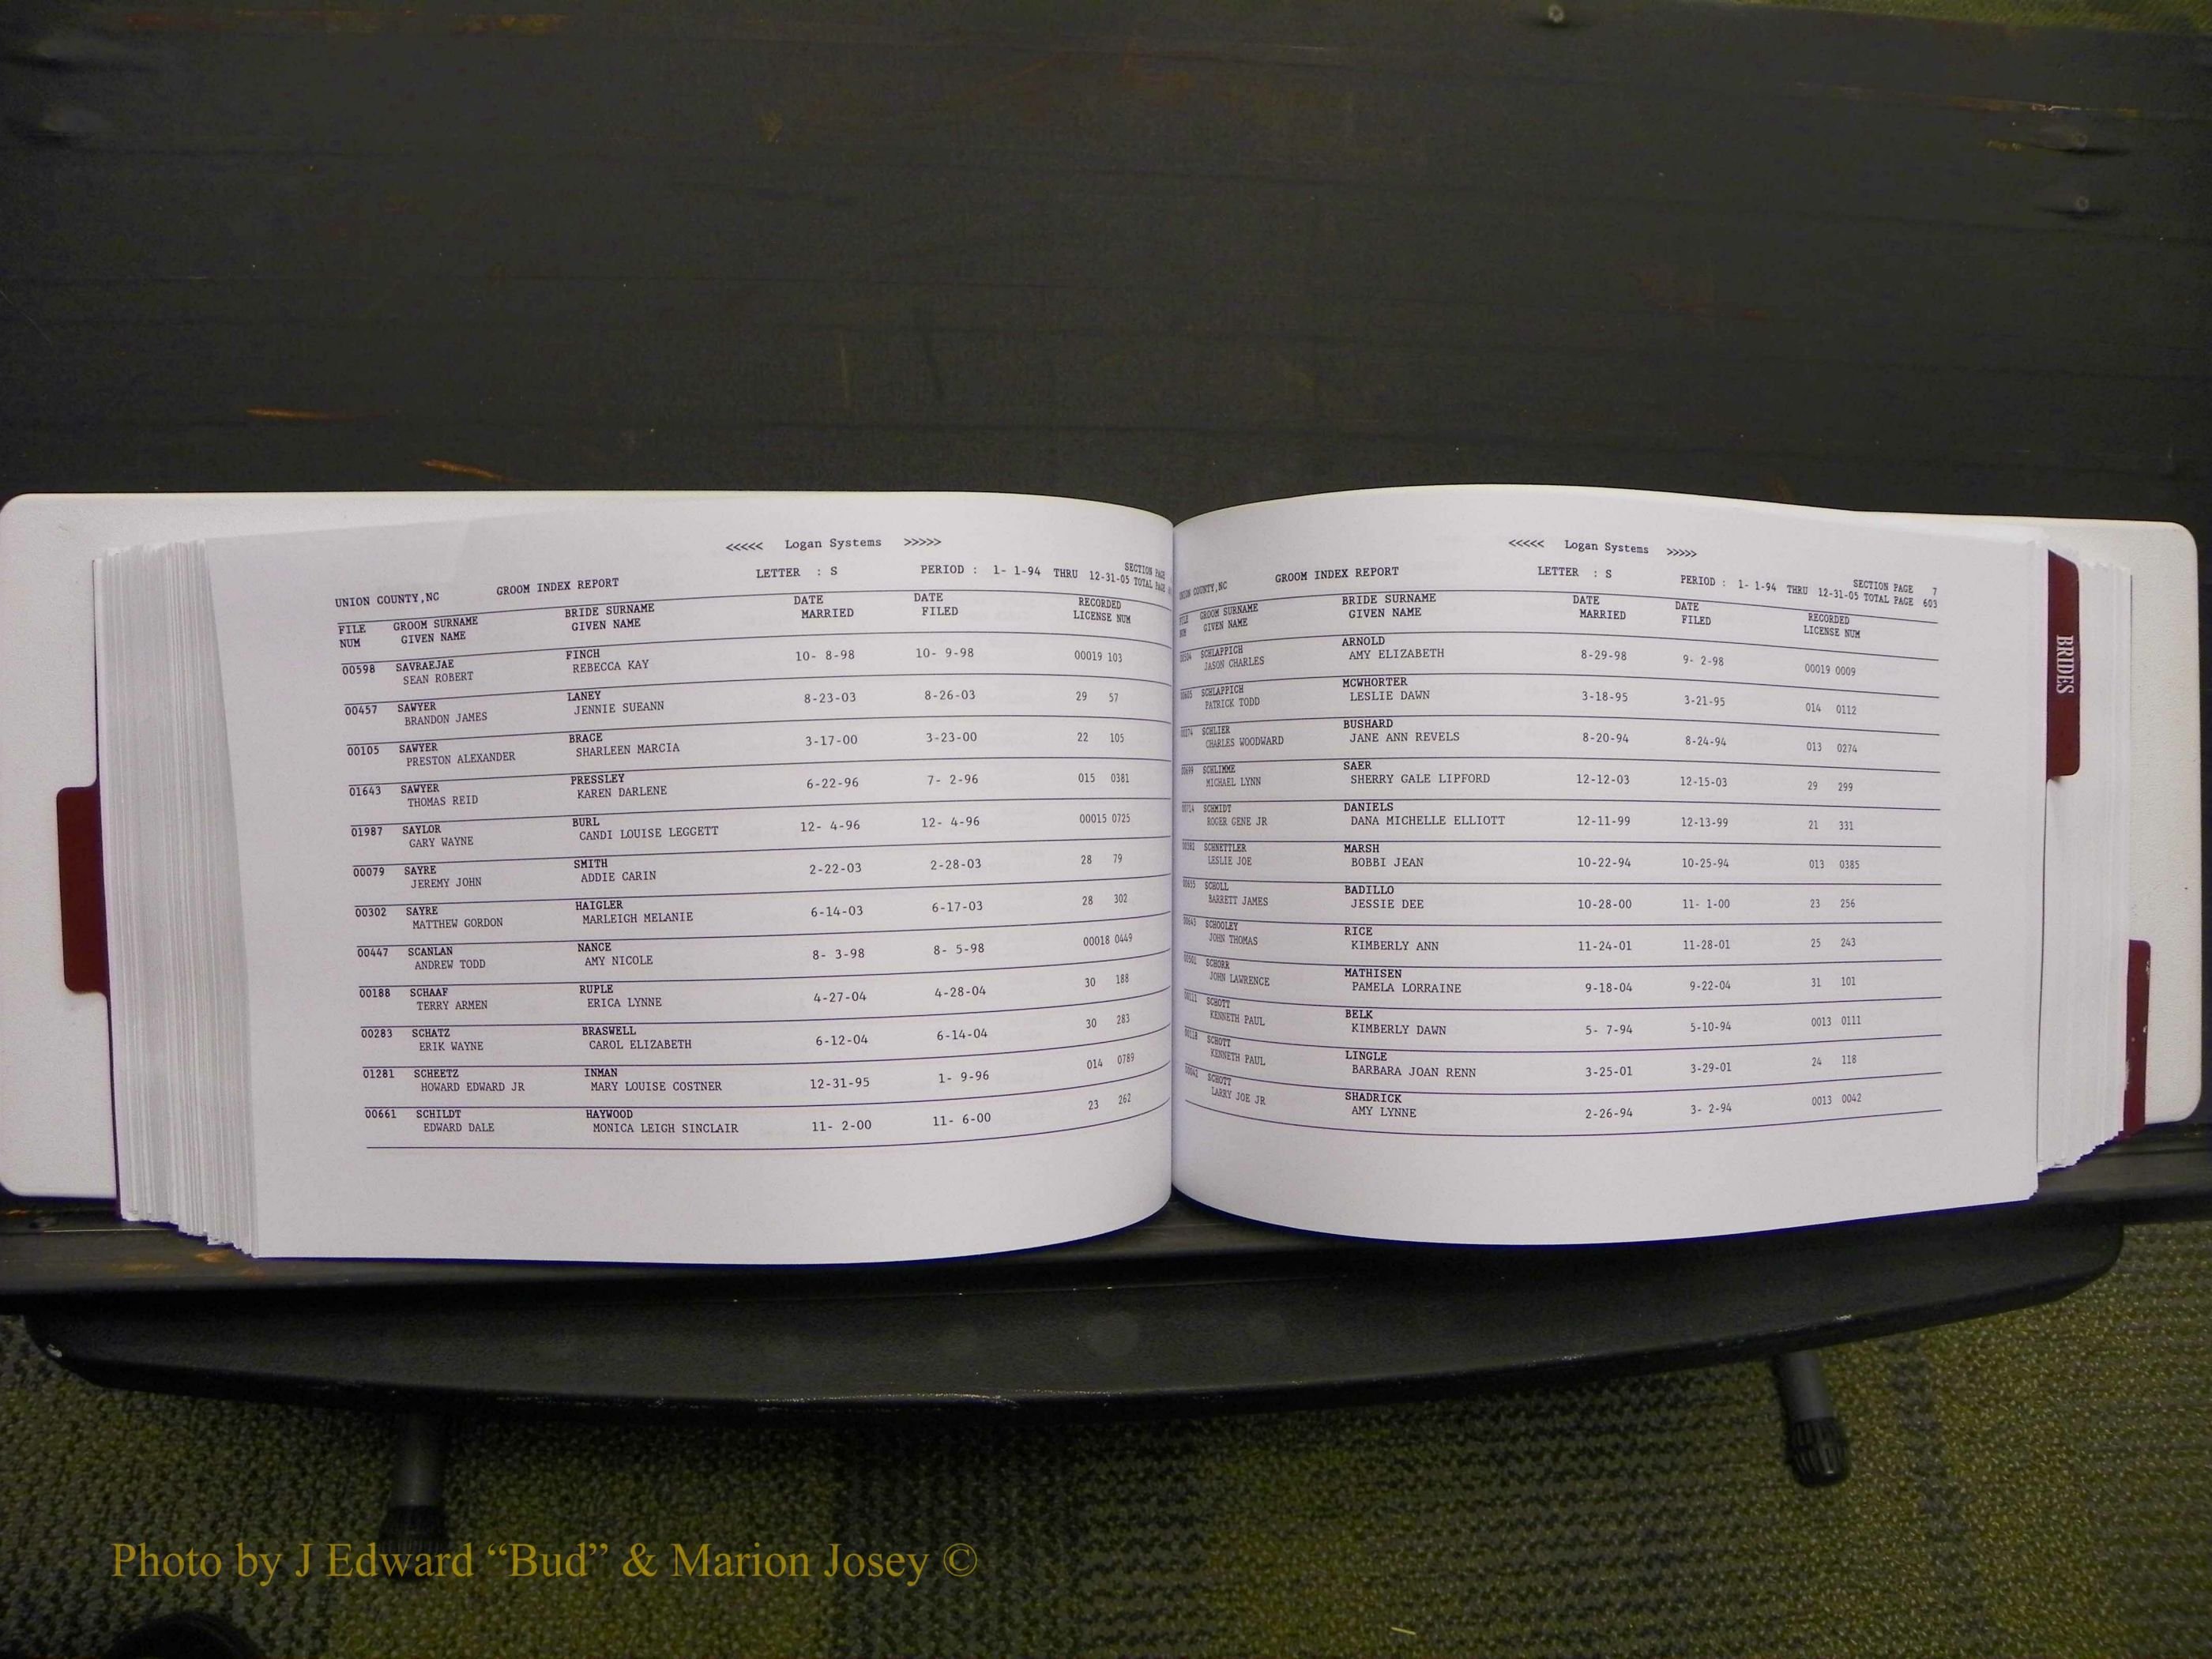 <<<<< Logan Systems >>>>>
UNION COUNTY,NC GROOM INDEX REPORT LETTER : S PERIOD : 1- 1-94 THRU 12-31-05 SECTION PAGE
TOTAL PAGE
FILE GROOM SURNAME BRIDE SURNAME DATE DATE RECORDED
NUM GIVEN NAME GIVEN NAME MARRIED FILED LICENSE NUM
00598 SAVRAEJAE FINCH 10- 8-98 10- 9-98 00019 103
SEAN ROBERT REBECCA KAY
00457 SAWYER LANEY 8-23-03 8-26-03 29 57
BRANDON JAMES JENNIE SUEANN
00105 SAWYER BRACE 3-17-00 3-23-00 22 105
PRESTON ALEXANDER SHARLEEN MARCIA
01643 SAWYER PRESSLEY 6-22-96 7- 2-96 015 0381
THOMAS REID KAREN DARLENE
01987 SAYLOR BURL 12- 4-96 12- 4-96 00015 0725
GARY WAYNE CANDI LOUISE LEGGETT
00079 SAYRE SMITH 2-22-03 2-28-03 28 79
JEREMY JOHN ADDIE CARIN
00302 SAYRE HAIGLER 6-14-03 6-17-03 28 302
MATTHEW GORDON MARLEIGH MELANIE
00447 SCANLAN NANCE 8- 3-98 8- 5-98 00018 0449
ANDREW TODD AMY NICOLE
00188 SCHAAF RUPLE 4-27-04 4-28-04 30 188
TERRY ARMEN ERICA LYNNE
00283 SCHATZ BRASWELL 6-12-04 6-14-04 30 283
ERIK WAYNE CAROL ELIZABETH
01281 SCHEETZ INMAN 12-31-95 1- 9-96 014 0789
HOWARD EDWARD JR MARY LOUISE COSTNER
00661 SCHILDT HAYWOOD 11- 2-00 11- 6-00 23 262
EDWARD DALE MONICA LEIGH SINCLAIR
<<<<< Logan Systems >>>>>
UNION COUNTY,NC GROOM INDEX REPORT LETTER : S PERIOD : 1- 1-94 THRU 12-31-05 SECTION PAGE 7
TOTAL PAGE 603
FILE GROOM SURNAME BRIDE SURNAME DATE DATE RECORDED
NUM GIVEN NAME GIVEN NAME MARRIED FILED LICENSE NUM
SCHLAPPICH ARNOLD 8-29-98 9- 2-98 00019 0009
JASON CHARLES AMY ELIZABETH
SCHLAPPICH MCWHORTER 3-18-95 3-21-95 014 0112
PATRICK TODD LESLIE DAWN
SCHLIER BUSHARD 8-20-94 8-24-94 013 0274
CHARLES WOODWARD JANE ANN REVELS
SCHLIMME SAER 12-12-03 12-15-03 29 299
MICHAEL LYNN SHERRY GALE LIPFORD
SCHMIDT DANIELS 12-11-99 12-13-99 21 331
ROGER GENE JR DANA MICHELLE ELLIOTT
SCHNETTLER MARSH 10-22-94 10-25-94 013 0385
LESLIE JOE BOBBI JEAN
SCHOLL BADILLO 10-28-00 11- 1-00 23 256
BARRETT JAMES JESSIE DEE
SCHOOLEY RICE 11-24-01 11-28-01 25 243
JOHN THOMAS KIMBERLY ANN
SCHORR MATHISEN 9-18-04 9-22-04 31 101
JOHN LAWRENCE PAMELA LORRAINE
SCHOTT BELK 5- 7-94 5-10-94 0013 0111
KENNETH PAUL KIMBERLY DAWN
SCHOTT LINGLE 3-25-01 3-29-01 24 118
KENNETH PAUL BARBARA JOAN RENN
SCHOTT SHADRICK 2-26-94 3- 2-94 0013 0042
LARRY JOE JR AMY LYNNE
BRIDES
Photo by J Edward “Bud” & Marion Josey ©